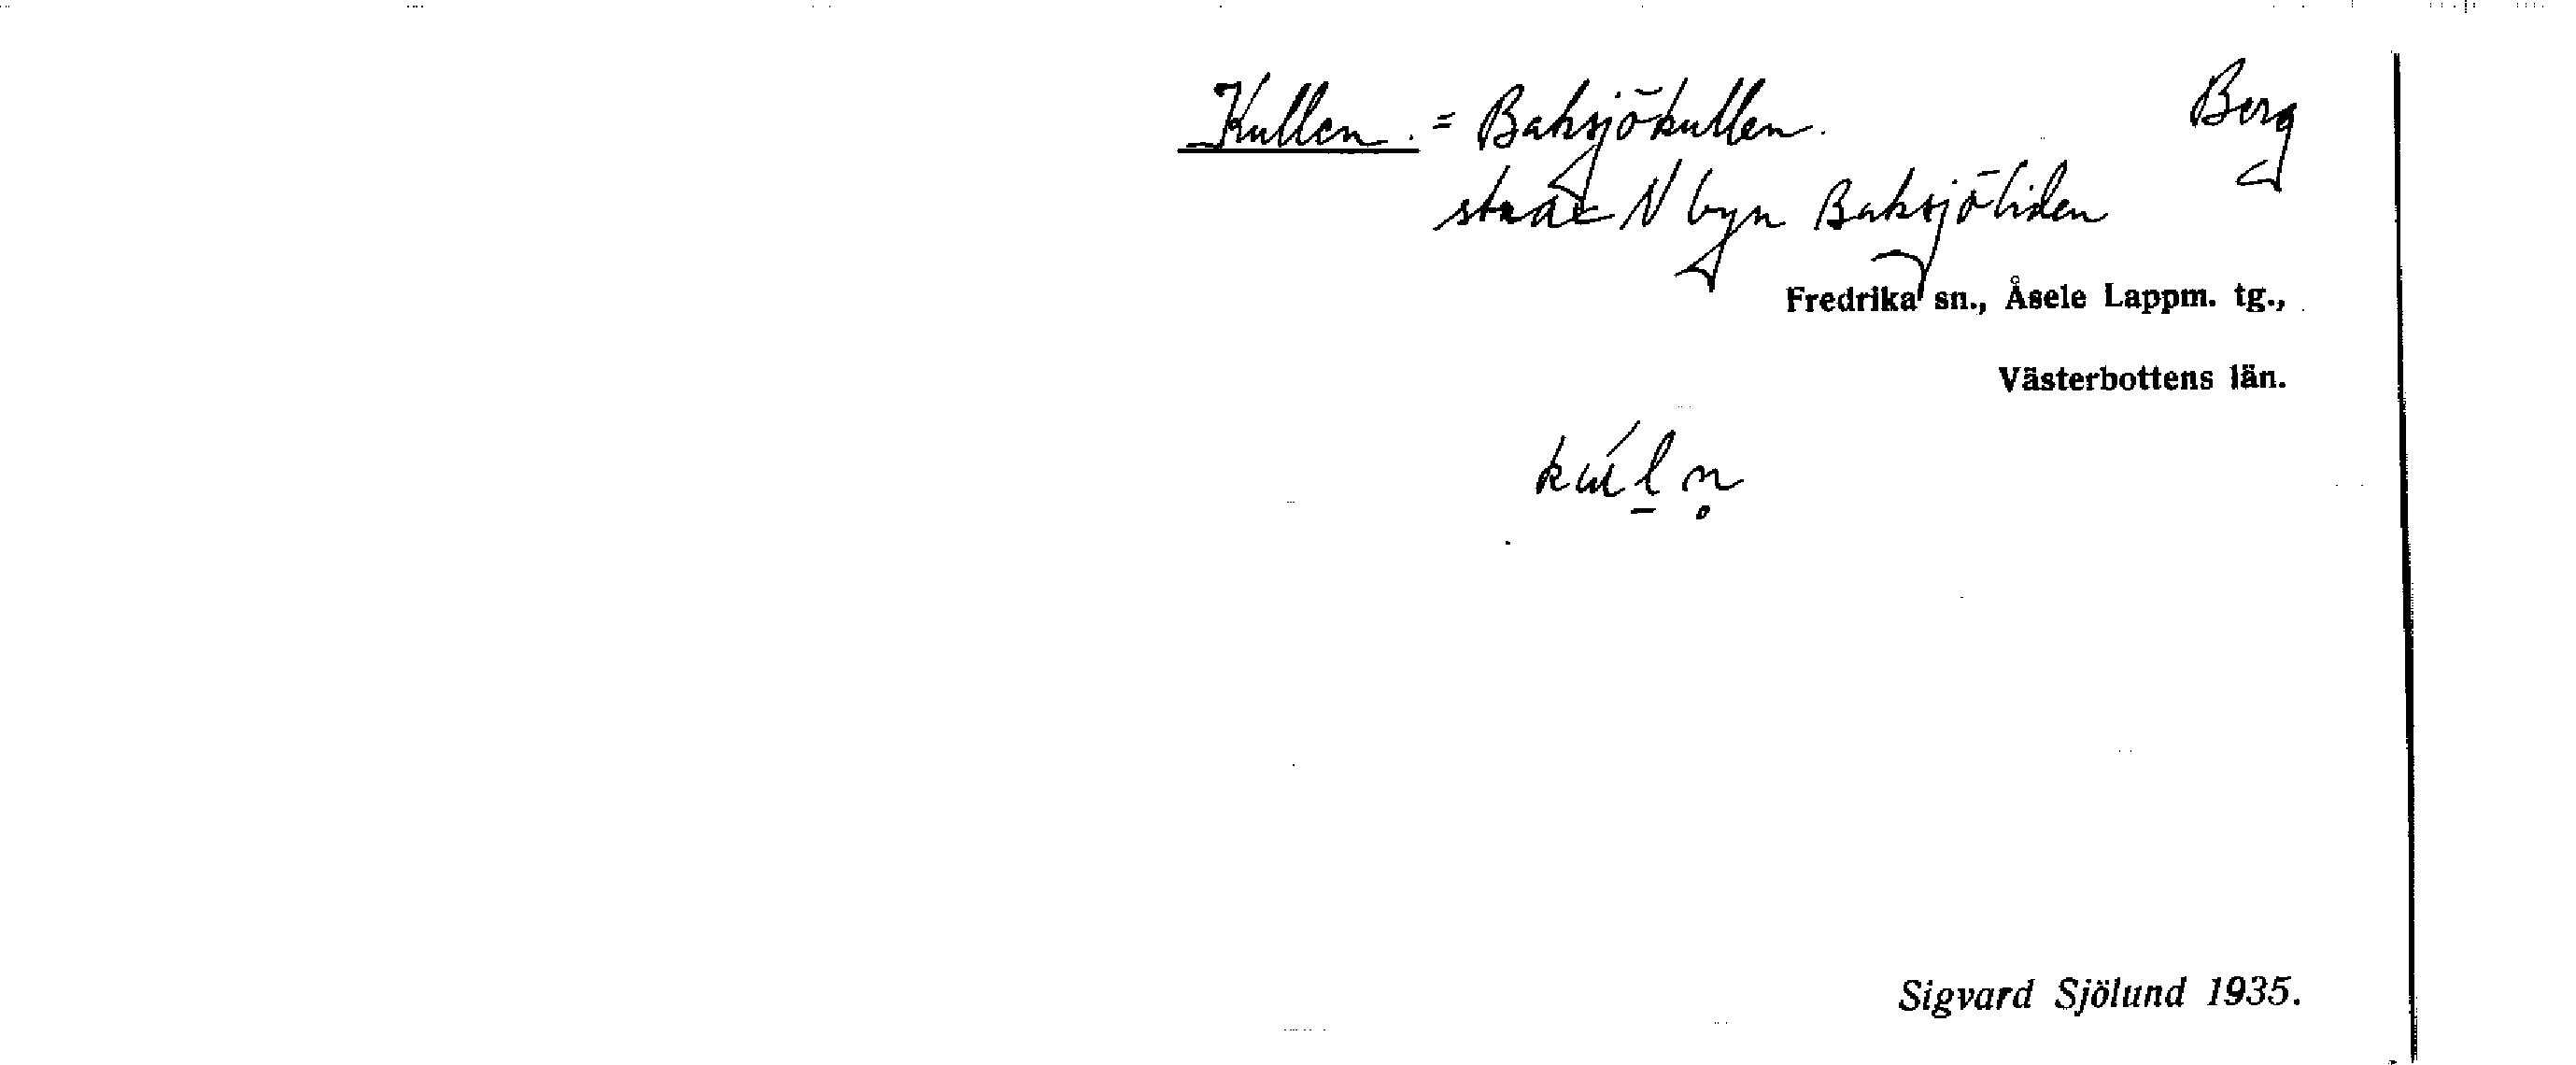 Kullen. = Baksjökullen. Berg
strax N byn Baksjöliden
Fredrika sn., Åsele Lappm. tg.,
Västerbottens län.
kúl̠n̥
Sigvard Sjölund 1935.